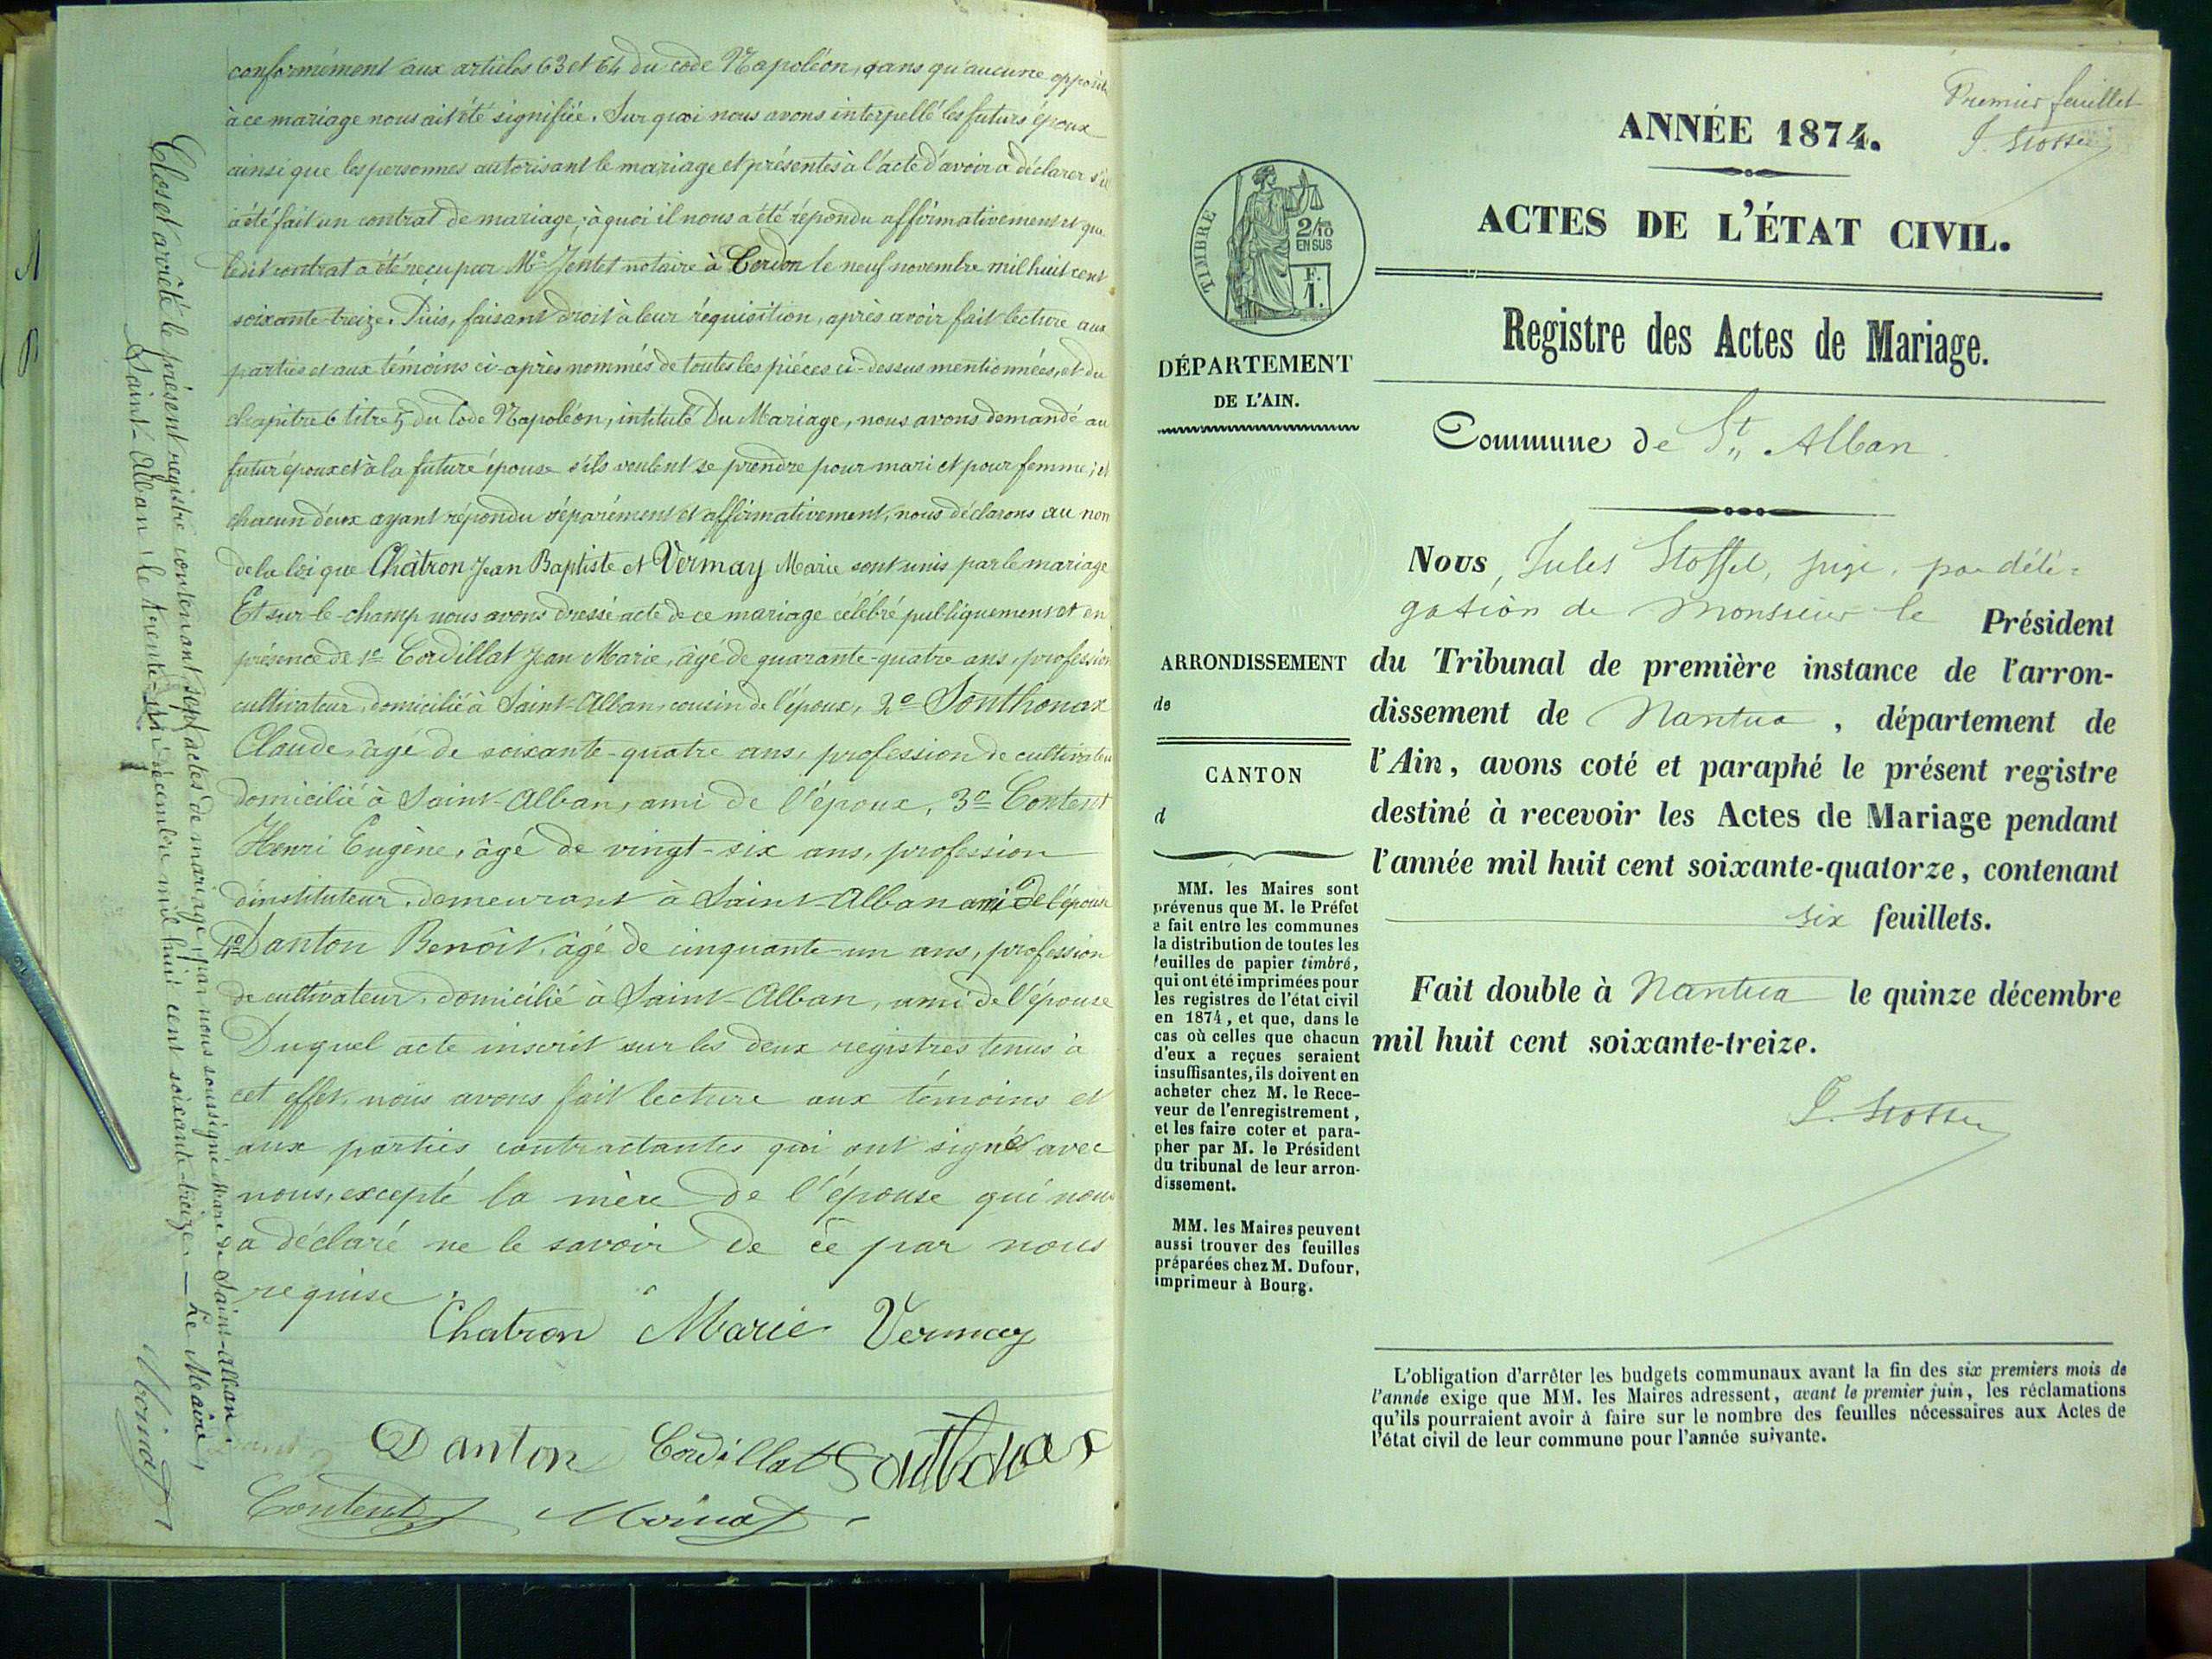 conformément aux articles 63 et 64 du code Napoléon, sans qu'aucune
à ce mariage nous ait été signifiée. Sur quoi nous avons interpellé les futurs époux
ainsi que les personnes autorisant le mariage et présentes à l'acte d'avoir à déclarer s'il
a été fait un contrat de mariage, à quoi il nous a été répondu affirmativement et que
ledit contrat a été reçu par Me notaire à Cerdon le neuf novembre mil huit cent
soixante-treize. Puis, faisant droit à leur réquisition, après avoir fait lecture aux
parties et aux témoins ci-après nommés de toutes les pièces ci-dessus mentionnées, et du
chapitre 6 titre 5 du Code Napoléon, intitulé Du Mariage, nous avons demandé au
futur époux et à la future épouse s'ils veulent se prendre pour mari et pour femme; et
chacun d'eux ayant répondu séparément et affirmativement, nous déclarons au nom
de la loi que Chatron Jean Baptiste et Vermay Marie sont unis par le mariage
Et sur-le-champ nous avons dressé acte de ce mariage célébré publiquement et en
présence de 1o Cordillat Jean Marie, âgé de quarante-quatre ans, profession
cultivateur, domicilié à Saint-Alban, cousin de l'époux, 2o Sonthonax
Claude, âgé de soixante-quatre ans, profession de cultivateur
domicilié à Saint-Alban, ami de l'époux, 3o Content
Henri Eugène, âgé de vingt-six ans, profession
d'instituteur, demeurant à Saint-Alban ami de l'épouse
4o Danton Benoît, âgé de cinquante-un ans, profession
de cultivateur, domicilié à Saint-Alban, ami de l'épouse
Duquel acte inscrit sur les deux registres tenus à
cet effet, nous avons fait lecture aux témoins et
aux parties contractantes qui ont signés avec
nous, excepté la mère de l'épouse qui nous
a déclaré ne le savoir de ce par nous
requise.
Chatron Marie Vermay
Danton Cordillat Sonthonax
Content Moinat
Clos et arrêté le présent registre contenant sept actes de mariage, par nous soussigné Maire de Saint-Alban
Saint-Alban, le trente-un décembre mil huit cent soixante-treize. — Le Maire,
Moinat
Premier feuillet
J. Stoffel
ANNÉE 1874.
ACTES DE L'ÉTAT CIVIL.
Registre des Actes de Mariage.
TIMBRE
2/10
EN SUS
F.
1.
DÉPARTEMENT
DE L'AIN.
Commune de St Alban.
Nous, Jules Stoffel, juge, par délé=
gation de Monsieur le Président
du Tribunal de première instance de l'arron-
dissement de Nantua, département de
l'Ain, avons coté et paraphé le présent registre
destiné à recevoir les Actes de Mariage pendant
l'année mil huit cent soixante-quatorze, contenant
six feuillets.
Fait double à Nantua le quinze décembre
mil huit cent soixante-treize.
J. Stoffel
ARRONDISSEMENT
de
CANTON
d
MM. les Maires sont
prévenus que M. le Préfet
a fait entre les communes
la distribution de toutes les
feuilles de papier timbré,
qui ont été imprimées pour
les registres de l'état civil
en 1874, et que, dans le
cas où celles que chacun
d'eux a reçues seraient
insuffisantes, ils doivent en
acheter chez M. le Rece-
veur de l'enregistrement,
et les faire coter et para-
pher par M. le Président
du tribunal de leur arron-
dissement.
MM. les Maires peuvent
aussi trouver des feuilles
préparées chez M. Dufour,
imprimeur à Bourg.
L'obligation d'arrêter les budgets communaux avant la fin des six premiers mois de
l'année exige que MM. les Maires adressent, avant le premier juin, les réclamations
qu'ils pourraient avoir à faire sur le nombre des feuilles nécessaires aux Actes de
l'état civil de leur commune pour l'année suivante.